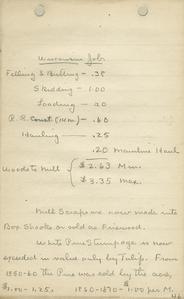 Wisconsin Job.
Felling & Bucking - .38
Skidding - 1.00
Loading - .20
R.R. Const. (14 m.) - .60
Hauling - .25
.20 Mainline Haul
Woods to Mill { $2.63 Min.
$3.35 Max.
Mill Scraps are now made into
Box Shooks or sold as Firewood.
White Pine Stumpage is now
exceeded in value only by Tulip. From
1850-60 the Pine was sold by the acre,
$1.00-1.25. 1860-1870 = $1.00 per M.